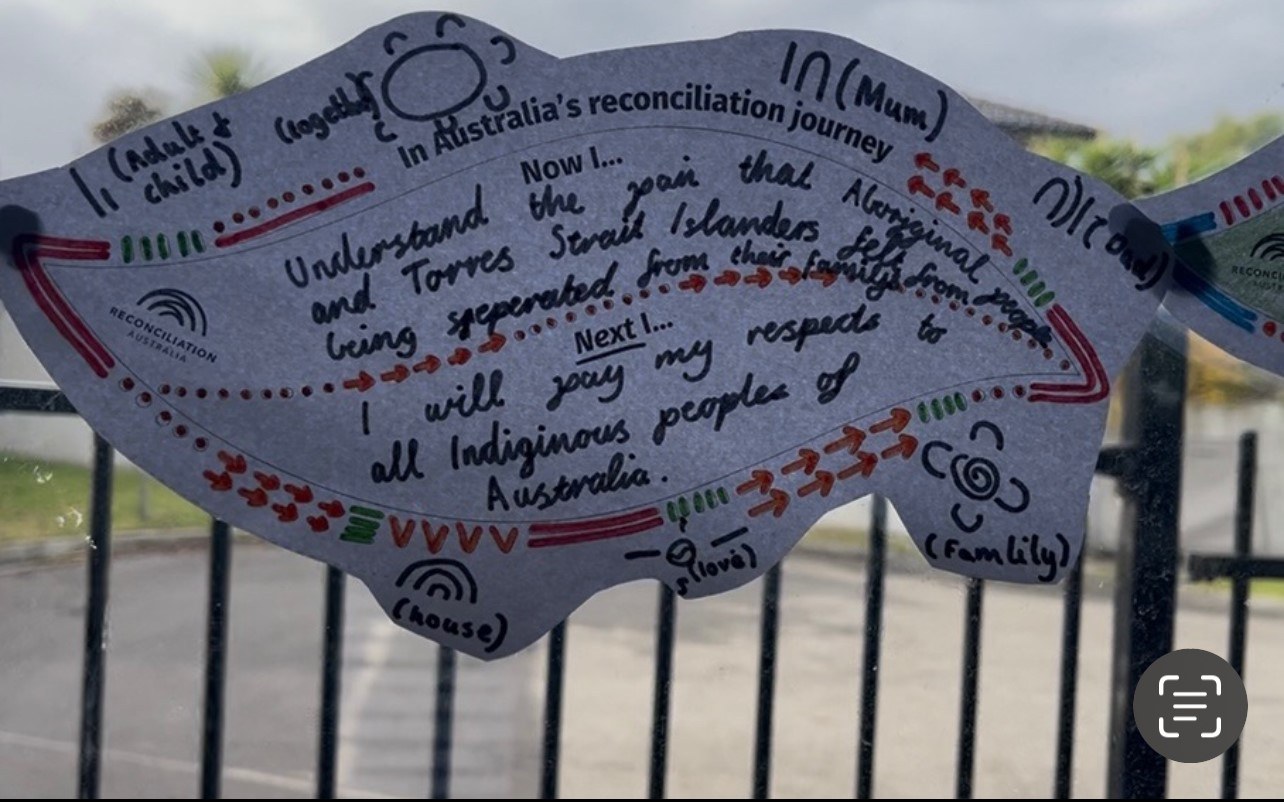 (Mum)
(together)
(Adult &
child)
In Australia's reconciliation journey
Now I...
Understand the pain that Aboriginal
and Torres Strait Islanders felt from people
being seperated from their familys
Next I...
I will pay my respects to
all Indiginous peoples of
Australia.
(Dad)
RECONCILIATION
AUSTRALIA
(house)
(love)
(Famlily)
RECONC
AUST